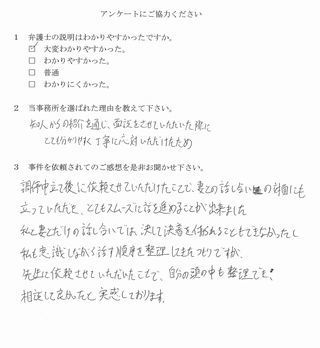 アンケートにご協力ください
1 弁護士の説明はわかりやすかったですか。
☑ 大変わかりやすかった。
□ わかりやすかった。
□ 普通
□ わかりにくかった。
2 当事務所を選ばれた理由を教えて下さい。
知人からの紹介を通じ、面談をさせていただいた際に
とても分かりやすく丁寧に応対いただけたため
3 事件を依頼されてのご感想を是非お聞かせ下さい。
調停申立て後に依頼させていただけたことで、妻との話しない の対面にも
立っていただき、とてもスムーズに話を進めることが出来ました
私と妻だけの話し合いでは、決して決着を付けられることもできなかったし
私も意識しながら話す順序を整理してきたつもりですが、
先生に依頼させていただいたことで、自分の頭の中も整理でき
相談して良かったと実感しております。